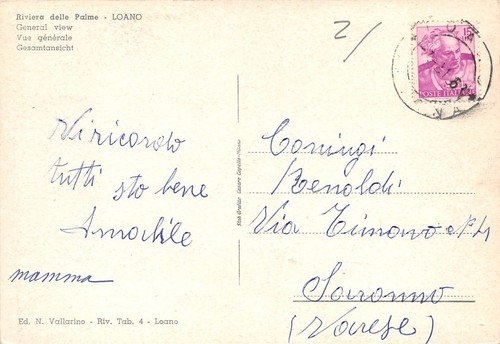 Riviera delle Palme - LOANO
General view
Vue générale
Gesamtansicht
2/
15
POSTE ITALIANE
Vi ricordo
tutti sto bene
Amabile
mamma
Coniugi
Renoldi
Via Timavo N 4
Saronno
(Varese)
Ed. N. Vallarino - Riv. Tab. 4 - Loano